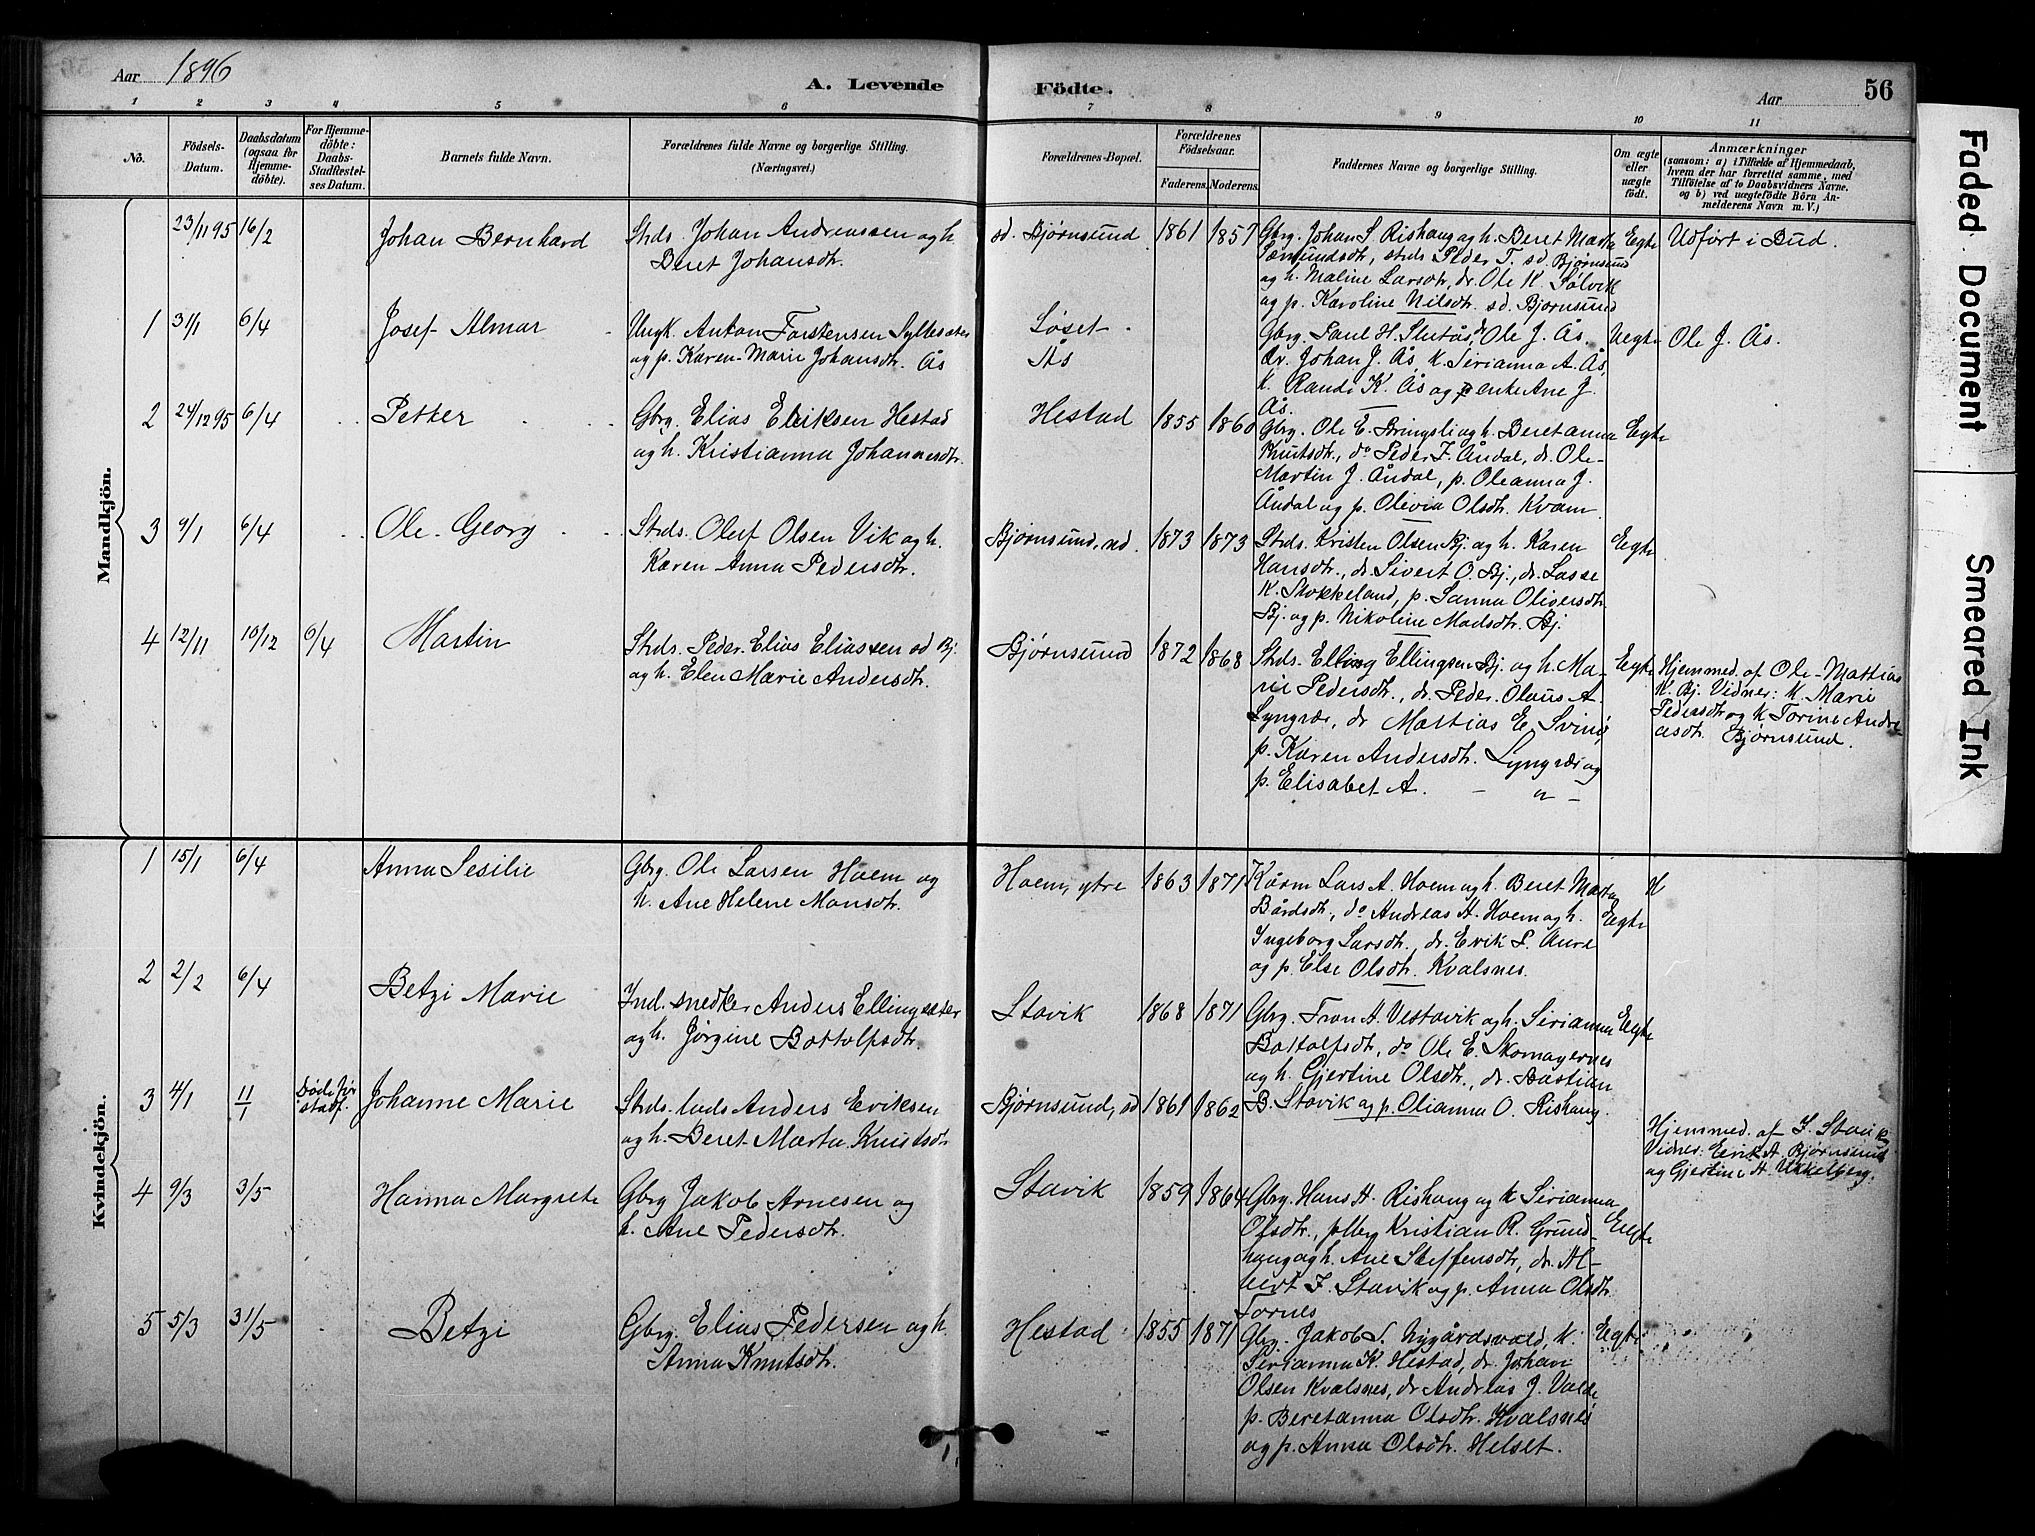 Aar 1896
A. Levende Födte.
Aar
56
1 2 3 4 5 6 7 8 9 10 11
No.
Födsels-Datum.
Daabsdatum (ogsaa for Hjemme-döbte).
For Hjemme-döbte: Daabs-Stadfæstel-ses Datum.
Barnets fulde Navn.
Forældrenes fulde Navne og borgerlige Stilling. (Næringsvei.)
Forældrenes-Bopæl.
Forældrenes Födselsaar.
Faderens. Moderens.
Faddernes Navne og borgerlige Stilling.
Om ægte eller uægte födt.
Anmærkninger
(saasom: a) i Tilfælde af Hjemmedaab, hvem der har forrettet samme, med Tilföielse af to Daabsvidners Navne. og b) ved uægtefödte Börn An-melderens Navn m. V.)
Mandkjön.
23/11 95 16/2 Johan Bernhard
Strds. Johan Andreassen og h.
Beret Johansdtr.
sd. Bjørnsund 1861 1857
Gbrg. Johan S. Rishaug og h. Beret Marta
Sæmundsdtr, strds Peder T. sd. Bjørnsund
og h. Maline Larsdtr, dr. Ole K. Sølvik
og p. Karoline Nilsdtr. sd. Bjørnsund
Eegte Udført i Bud.
1 31/1 6/4 Josef Almar
Ungk. Anton Torstensen Syltesæter
og p. Karen-Marie Johansdtr. Ås
Løset
Ås
Gbrg. Paul H. Slutås, dr Ole J. Ås,
dr. Johan J. Ås, k. Sirianna A. Ås,
k. Randi K. Ås og enke Ane J.
Ås.
Uegte Ole J. Ås.
2 24/12 95 6/4 Petter
Gbrg. Elias Eriksen Hestad
og h. Kristianna Johannesdtr.
Hestad 1855 1860
Gbrg. Ole E. Bringsli og h. Beretanna
Knutsdtr., do Peder I. Åndal, dr. Ole-
Martin J. Åndal, p. Oleanna J.
Åndal og p. Olevia Olsdtr. Kvam.
Eegte
3 9/1 6/4 Ole Georg
Strds. Oluf Olsen Vik og h.
Karen Anna Pedersdtr.
Bjørnsund, nd. 1873 1873
Strds. Kristen Olsen Bj. og h. Karen
Hansdtr., dr. Sivert O. Bj., dr. Lasse
K. Stokkeland, p. Sanna Oliversdtr.
Bj. og p. Nikoline Madsdtr. Bj.
Eegte
4 12/11 10/12 6/4 Martin
Strds. Peder Elias Eliassen sd Bj.
og h. Elen Marie Andersdtr.
Bjørnsund 1872 1868
Strds. Elling Ellingsen Bj. og h. Ma-
rie Pedersdtr., dr. Peder Olaus A.
Lyngvær, dr Mattias E. Svinø,
p. Karen Andersdtr. Lyngvær og
p. Elisabet A. - " -
Eegte
Hjemmed. af Ole-Mattias
K. Bj. Vidner: k. Marie
Pedersdtr og k Torine Andre-
asdtr. Bjørnsund.
Kvindekjön.
1 15/1 6/4 Anna Sesilie
Gbrg. Ole Larsen Hoem og
h. Ane Helene Monsdtr.
Hoem, ytre 1863 1871
Kårm Lars A. Hoem og h. Beret Marta
Bårdsdtr., do Andreas A. Hoem og h.
Ingeborg Larsdtr., dr. Erik L. Aure
og p. Else Olsdtr. Kvalsnes.
H
Eegte
2 2/2 6/4 Betzi Marie
Ind. snedker Anders Ellingsæter
og h. Jørgine Bottolfsdtr.
Stavik 1868 1871
Gbrg. Tron A. Vestavik og h. Sirianna
Bottolfsdtr, do Ole E. Skomagernes
og h. Gjertine Olsdtr., dr. Bastian
B. Stavik og p. Olianna O. Rishaug.
Eegte
3 4/1 11/1 Døde før stadf. Johanne Marie
Strds. Anders Eriksen
og h. Beret Marta Knutsdtr
Bjørnsund, sd 1861 1862
Hjemmed. af I. Stavik
Vidner: Erik A. Bjørnsund
og Gjertine A. Ukkelberg.
4 9/3 3/5 Hanna Margrete
Gbrg Jakob Arnesen og
h. Ane Pedersdtr.
Stavik 1859 1864
Gbrg. Hans H. Rishaug og k Sirianna
Olsdtr., Kristian R. Grund-
haug og h. Ane Steffensdtr, dr. Al-
bert I. Stavik og p. Anna Olsdtr.
Tornes
Eegte
5 5/3 31/5 Betzi
Gbrg. Elias Pedersen og h
Anna Knutsdtr.
Hestad 1855 1871
Gbrg. Jakob S. Nygårdsvold, k.
Sirianna K. Hestad, dr. Johan
Olsen Kvalsnes, dr Andreas J. Volde
p. Beretanna Olsdtr. Kvalsnes
og p. Anna Olsdtr. Helset.
Eegte
Faded Document
Smeared Ink